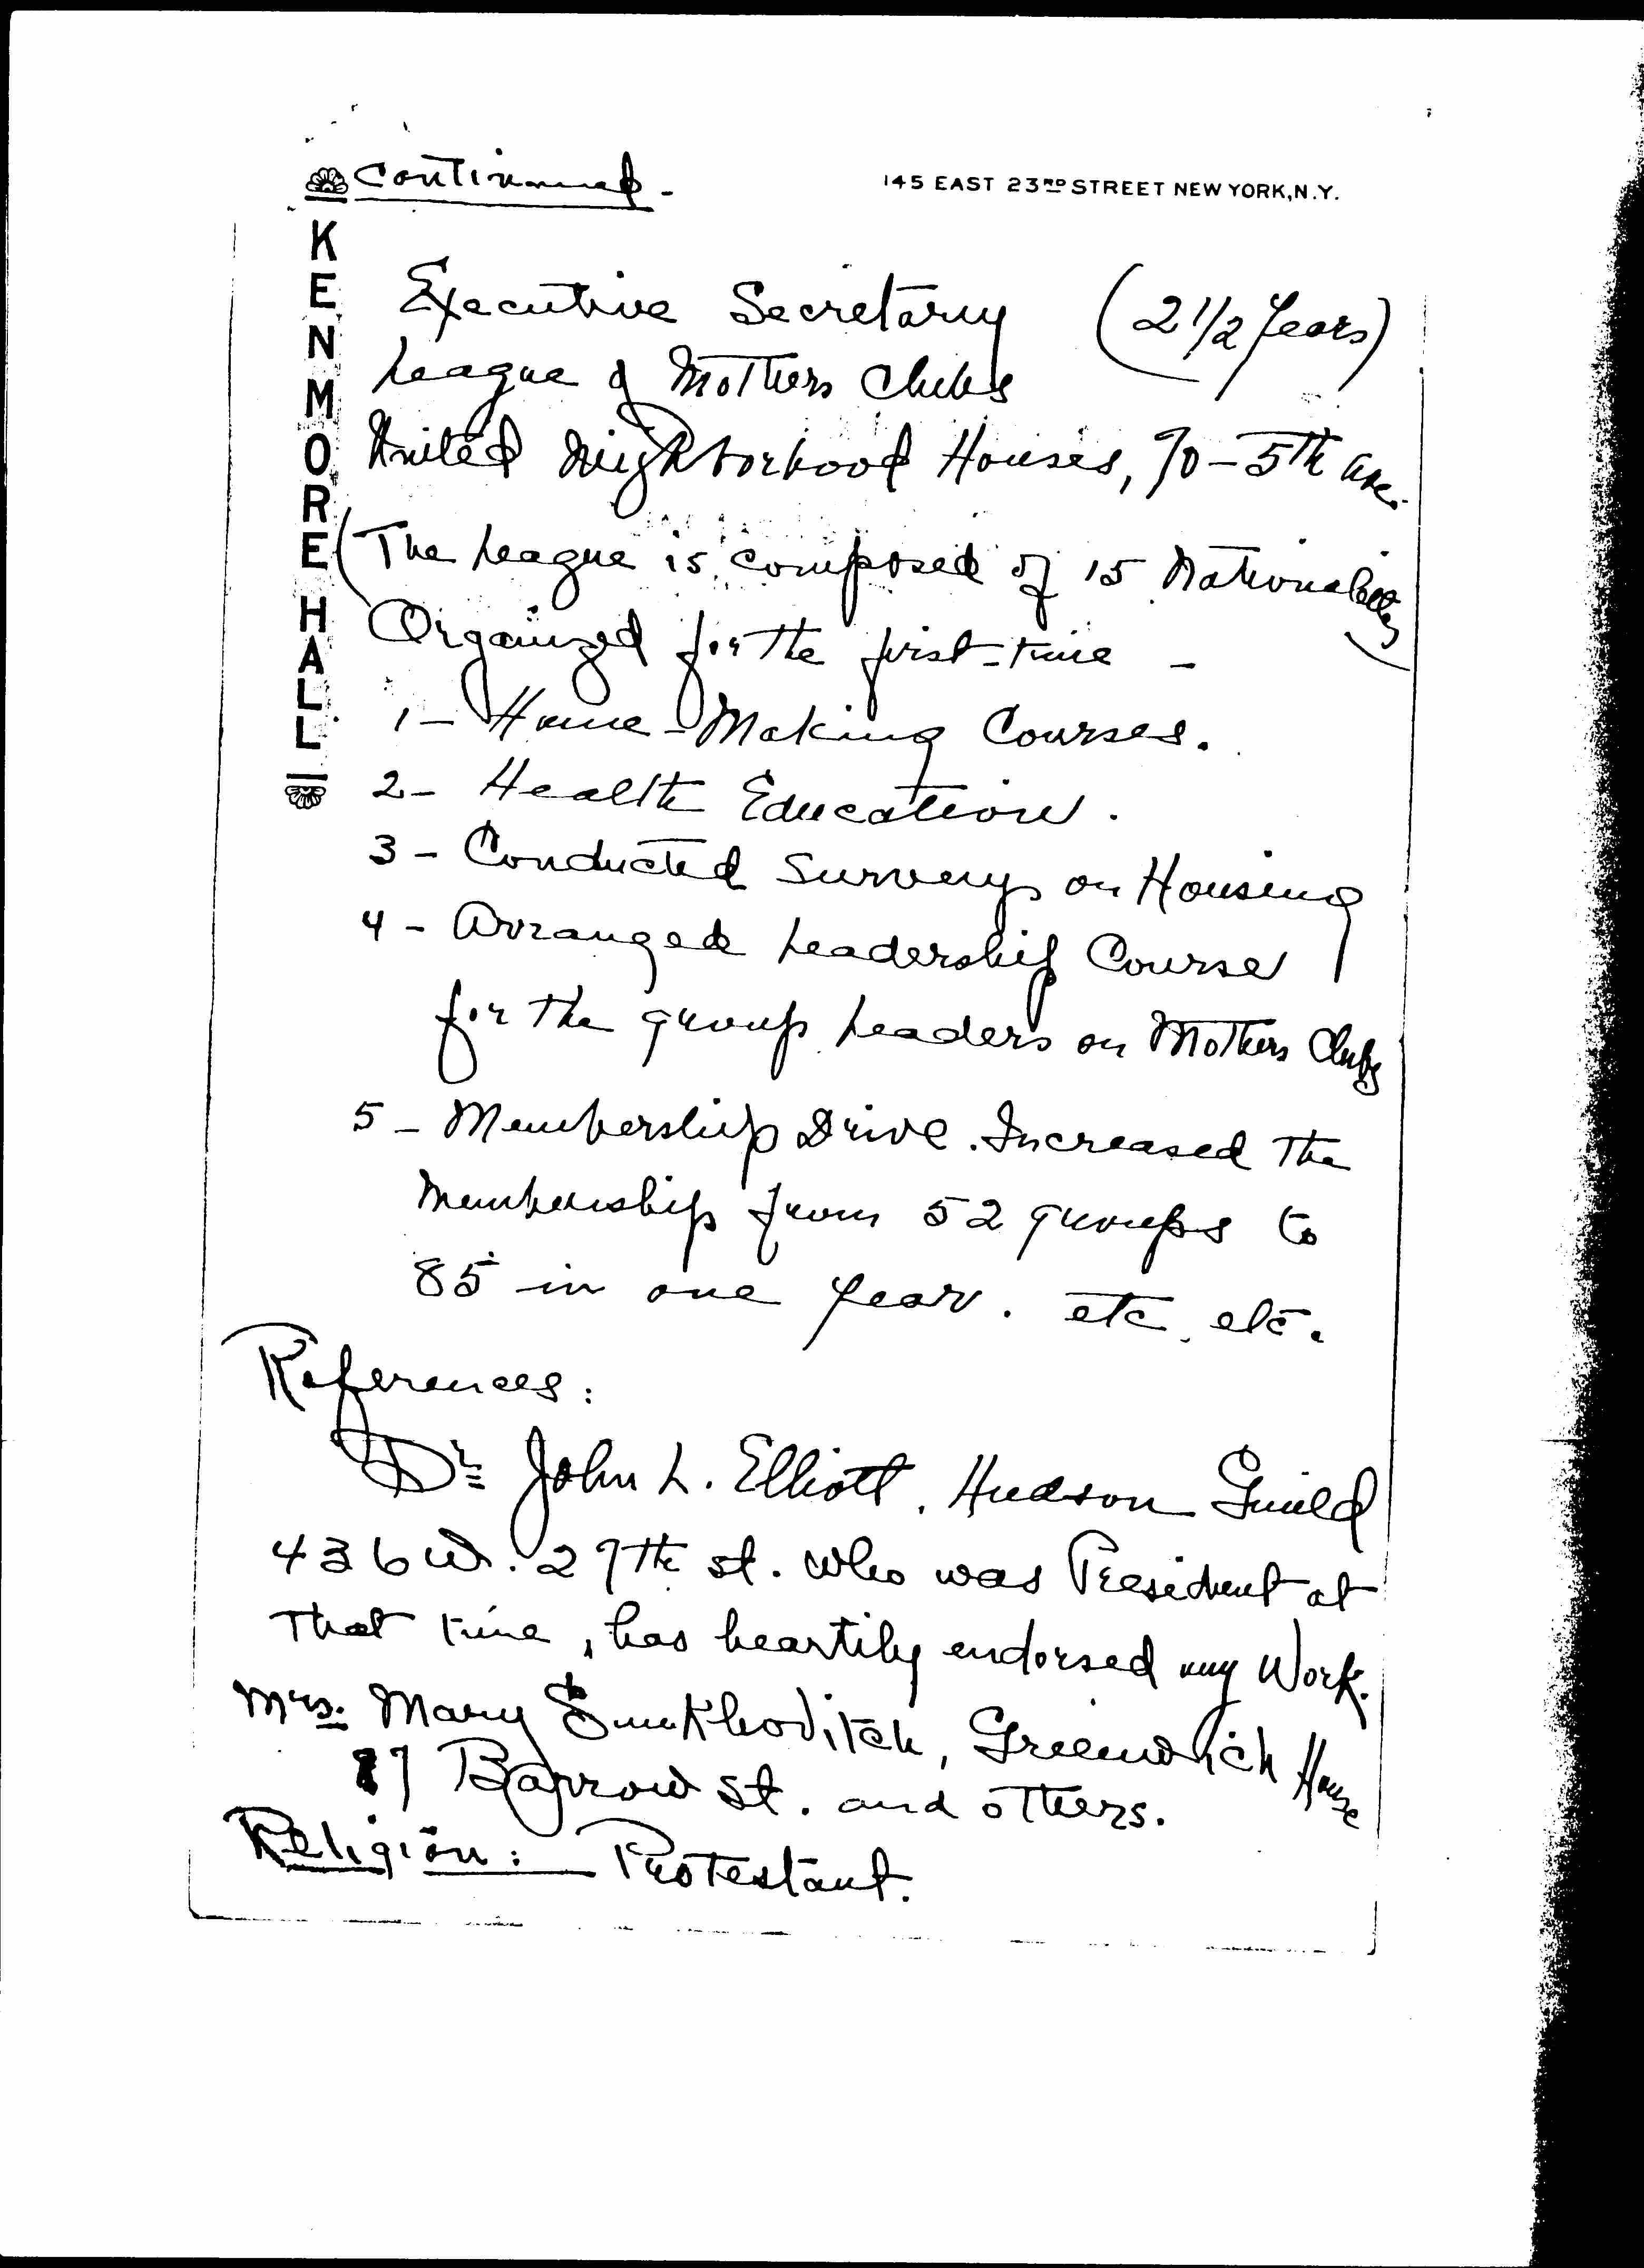 Continued -
145 EAST 23RD STREET NEW YORK, N.Y.
KENMORE HALL
Executive Secretary (2 1/2 years)
League of Mothers Clubs
United Neighborhood Houses, 70-5th Ave.
(The League is composed of 15 Nationalities)
Organized for the first-time -
1- Home-Making Courses.
2- Health Education.
3- Conducted Surveys on Housing
4- Arranged Leadership Course
for the group leaders on Mothers Clubs
5- Membership Drive. Increased the
Membership from 52 groups to
85 in one year. etc. etc.
References:
Dr. John L. Elliott, Hudson Guild
436 W. 27th st. who was President at
That time, has heartily endorsed my Work.
Mrs. Mary Simkhovitch, Greenwich House
27 Barrow St. and others.
Religion: Protestant.